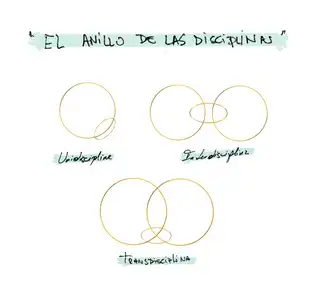 "EL ANILLO DE LAS DISCIPLINAS"
Unidiscipline
Interdiscipline
TRANSDISCIPLINA